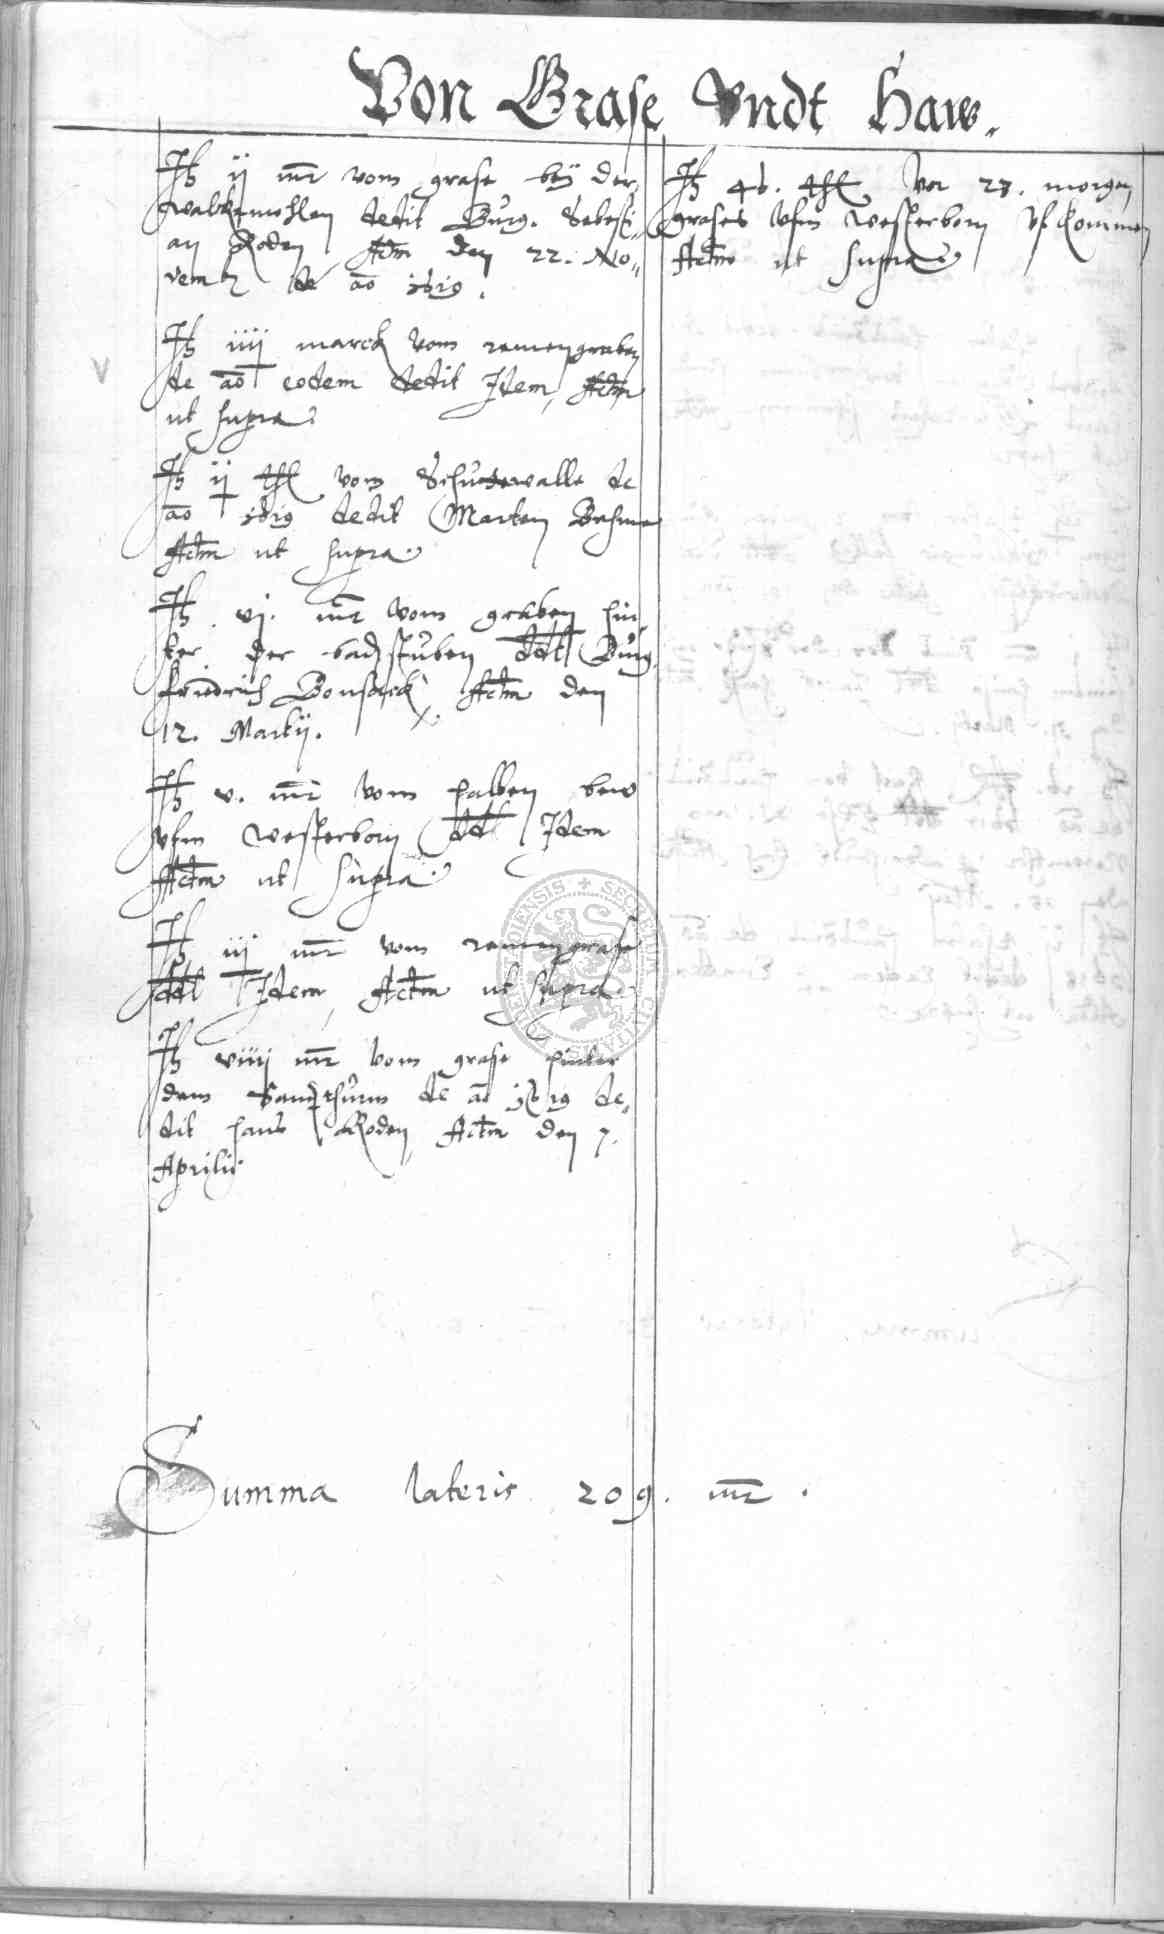 Von Grase Vndt Haw.
It ij mr vom grase beÿ der
walckmohlen dedit Burg. Sebesti=
an Roden Actm den 22. No=
vemb de ao 1619.
It iiij marck vom remengraben
de ao eodem dedit Idem, Actm
ut supra
It ij thl vom Schutzewalle de
ao 1619 dedit Marten Behme
Actm ut supra.
It vj. mr vom graben hin
ter der badstuben ddt Burg.
Friedrich Bonsack, Actm den
12. Martij.
It v. mr vom halben
vfm westerborn ddt Idem
Actm ut supra.
It iij mr vom remengrase
ddt Idem, Actm ut supra
It viiij mr vom grase hinter
dem Sandthurm de ao 1619 de=
dit Hans Roden, Actm den 7.
Aprilis
It 46. thl Vor 23. morgen
grases vfm westerborn vfkommen
Actm ut supra
Summa lateris 209. mr.
SECRETUM CIVITATIS